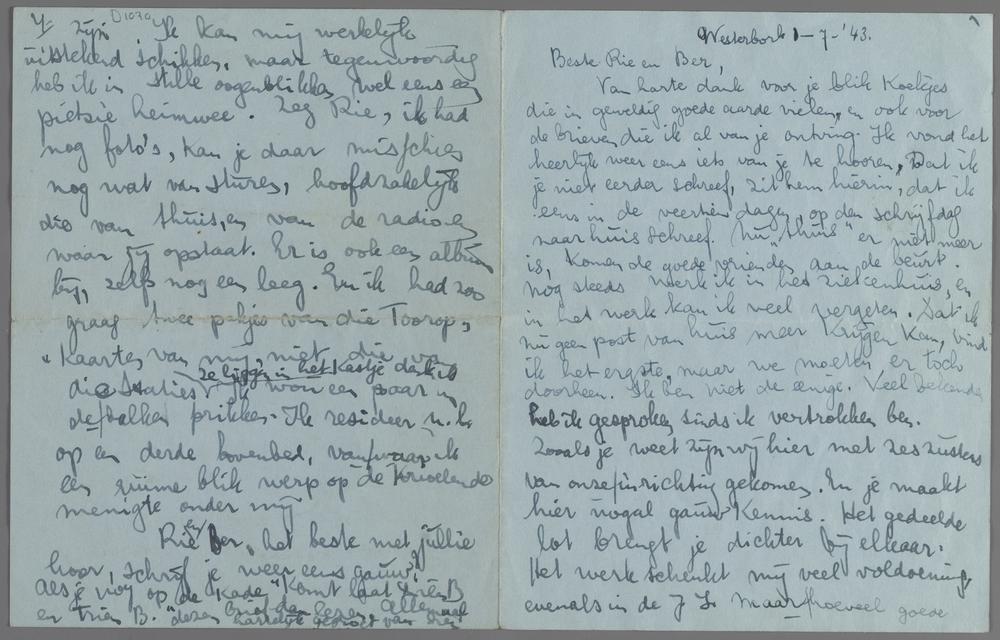 1
Westerbork 1-7-'43.
Beste Rie en Ber,
Van harte dank voor je blik Koekjes
die in geweldig goede aarde vielen, en ook voor
de brieven die ik al van je ontving. Ik vond het
heerlijk weer eens iets van je te hooren, Dat ik
je niet eerder schreef, zit hem hierin, dat ik
eens in de veertien dagen, op den schrijfdag
naar huis schreef. Nu "thuis" er niet meer
is, komen de goede vrienden aan de beurt.
Nog steeds werk ik in het ziekenhuis, en
in het werk kan ik veel vergeten. Dat ik
nu geen post van huis meer krijgen kan, vind
ik het ergste, maar we moeten er toch
doorheen. Ik ben niet de eenige. Veel bekenden
heb ik gesproken, sinds ik vertrokken ben.
Zooals je weet zijn wij hier met zes zusters
van onze inrichting gekomen. En je maakt
hier nogal gauw Kennis. Het gedeelde
lot brengt je dichter bij elkaar.
Het werk schenkt mij veel voldoening,
evenals in de J I. Maar hoeveel goede
4 zijn D1070 Ik kan mij werkelijk
uitstekend schikken, maar tegenwoordig
heb ik in stille oogenblikken wel eens een
pietsie heimwee. Zeg Rie, ik had
nog foto's, kan je daar misschien
nog wat van sturen, hoofdzakelijk
die van thuis, en van de radio en
waar jij opstaat. Er is ook een album
bij, zelfs nog een leeg. En ik had zoo
graag twee pakjes van die Toorop,
Kaarten van mij, niet die van
ze liggen in het Kastje dank ik
die Staties. Ik wou een paar in
de balken prikken. Ik resideer n.l.
op een derde bovenbed, vanwaar ik
een ruime blik werp op de krioelende
menigte onder mij
Rie en Ber, het beste met jullie
hoor, schrijf je weer eens gauw?
Als je nog op de "Kade" komt laat Trien B
en Trien B. dezen brief dan lezen. Allemaal
hartelijk gegroet van